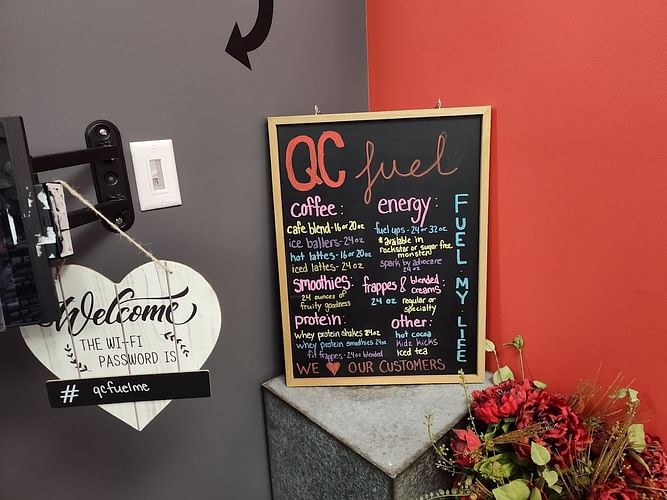 QC fuel
coffee:
cafe blend-16 or 20oz
ice ballers-24oz
hot lattes-16 or 20oz
iced lattes-24oz
smoothies:
24 ounces of
fruity goodness
protein:
whey protein shakes 24oz
whey protein smoothies 24oz
fit frappes-24oz blended
energy:
fuel ups-24 or 32oz
*available in
rockstar or sugar free
monster)
spark by advocare
24oz
frappes & blended
creams:
24 oz regular or
specialty
other:
hot cocoa
kidz kicks
iced tea
FUEL MY LIFE
WE ♥ OUR CUSTOMERS
Welcome
THE WI-FI
PASSWORD IS
# qcfuelme